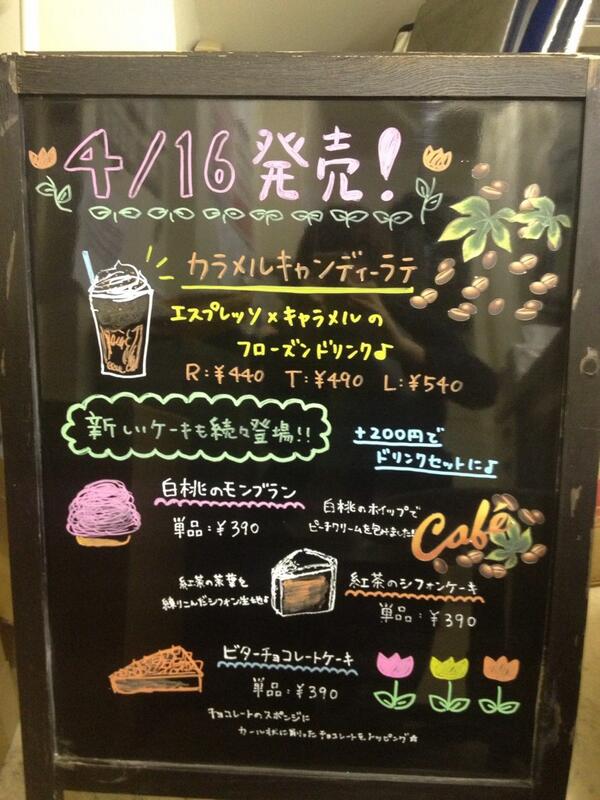 4/16 発売!
カラメルキャンディーラテ
エスプレッソ×キャラメルの
フローズンドリンク♪
R:¥440 T:¥490 L:¥540
新しいケーキも続々登場!!
+200円で
ドリンクセットに♪
白桃のモンブラン
単品:¥390
白桃のホイップで
ピーチクリームを包みました!
Café
紅茶の茶葉を
練りこんだシフォン生地♪
紅茶のシフォンケーキ
単品:¥390
ビターチョコレートケーキ
単品:¥390
チョコレートのスポンジに
カール状に削ったチョコレートをトッピング☆